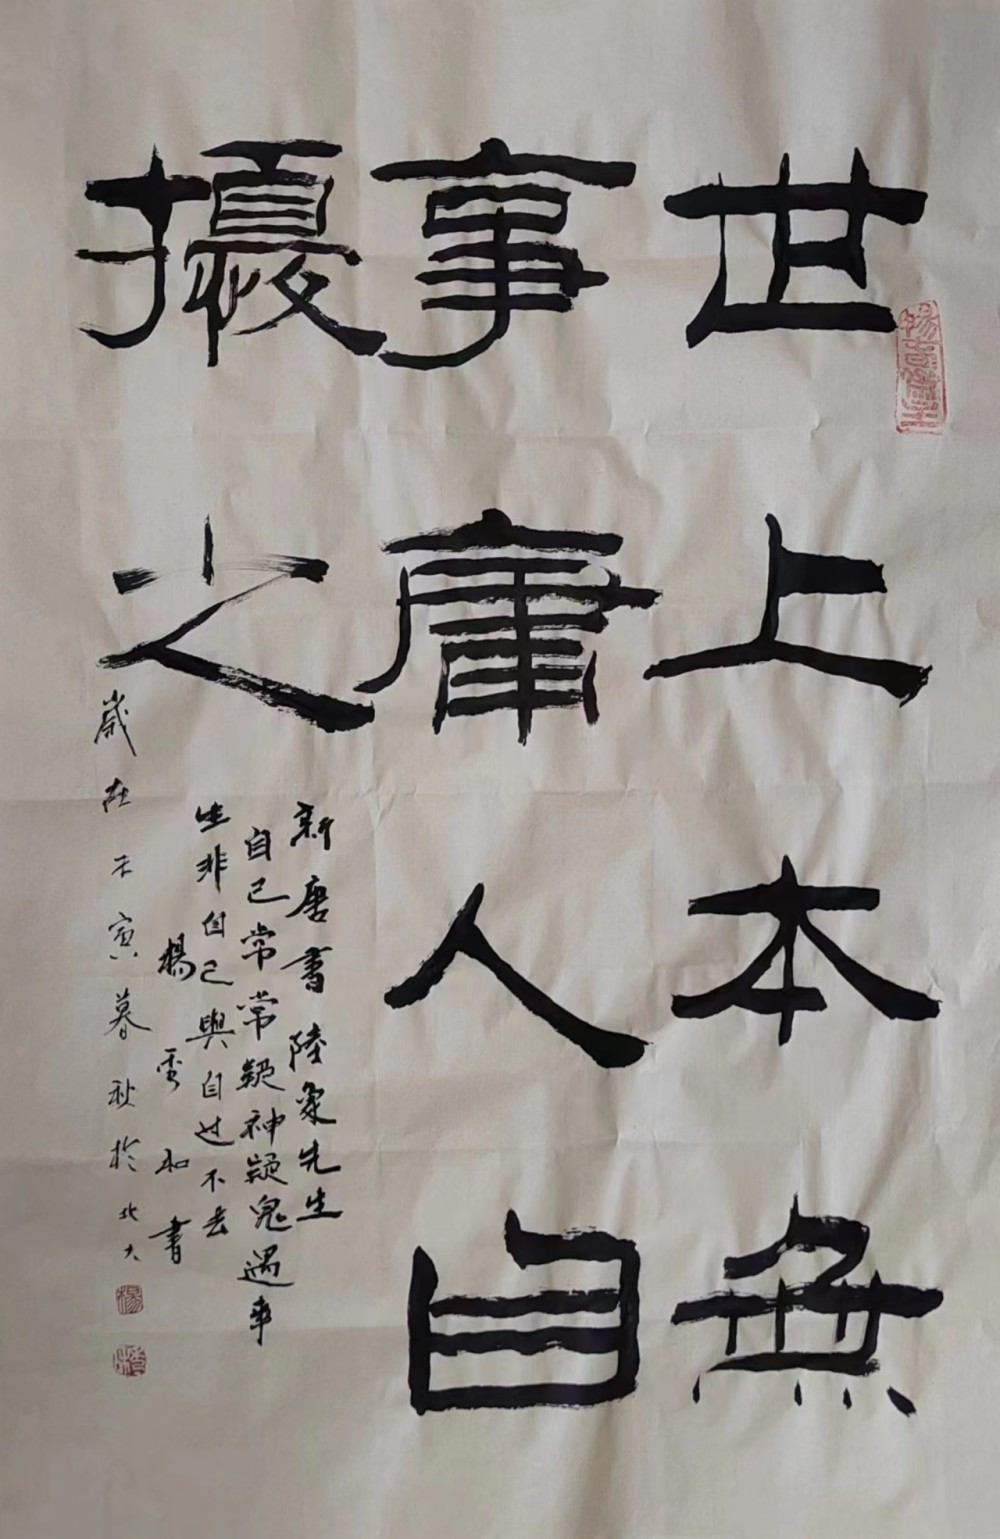 世上本無
事庸人自
擾之
新唐書陸象先生
自己常常疑神疑鬼遇事
生非自己與自过不去
楊和書
歲在壬寅暮秋於北大